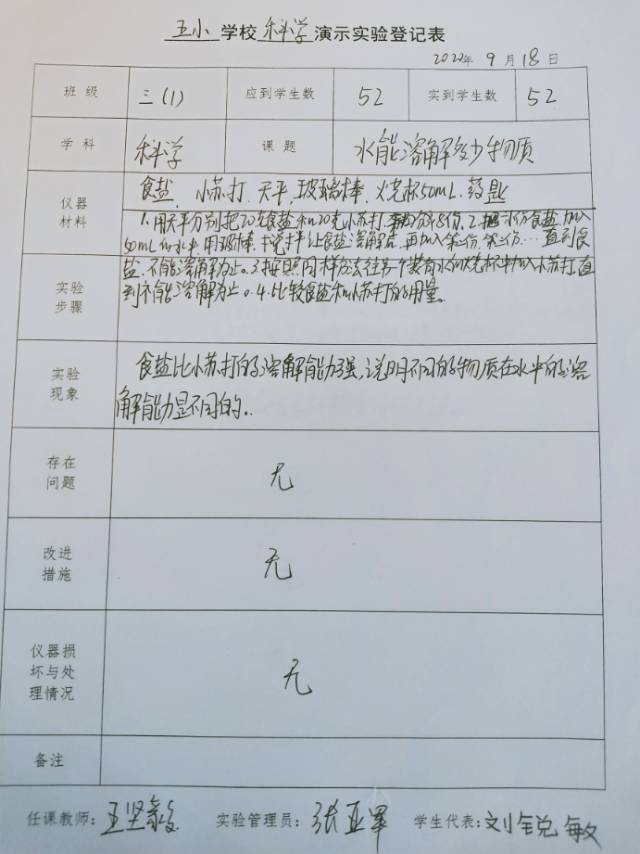 五小学校科学演示实验登记表
2022年9月18日
班级 三(1) 应到学生数 52 实到学生数 52
学科 科学 课题 水能溶解多少物质
仪器材料 食盐、小苏打、天平、玻璃棒、烧杯50mL、药匙
实验步骤 1.用天平分别把20克食盐和20克小苏打平均分成8份。2.把一份食盐加入
50mL的水中,用玻璃棒搅拌让食盐溶解后,再加入第二份、第三份…直到食
盐不能溶解为止。3.按照同样方法往另一个装有水的烧杯中加入小苏打,直
到不能溶解为止。4.比较食盐和小苏打的用量。
实验现象 食盐比小苏打的溶解能力强,说明不同的物质在水中的溶
解能力是不同的。
存在问题 无
改进措施 无
仪器损坏与处理情况 无
备注
任课教师: 实验管理员:张亚军 学生代表:刘锐敏